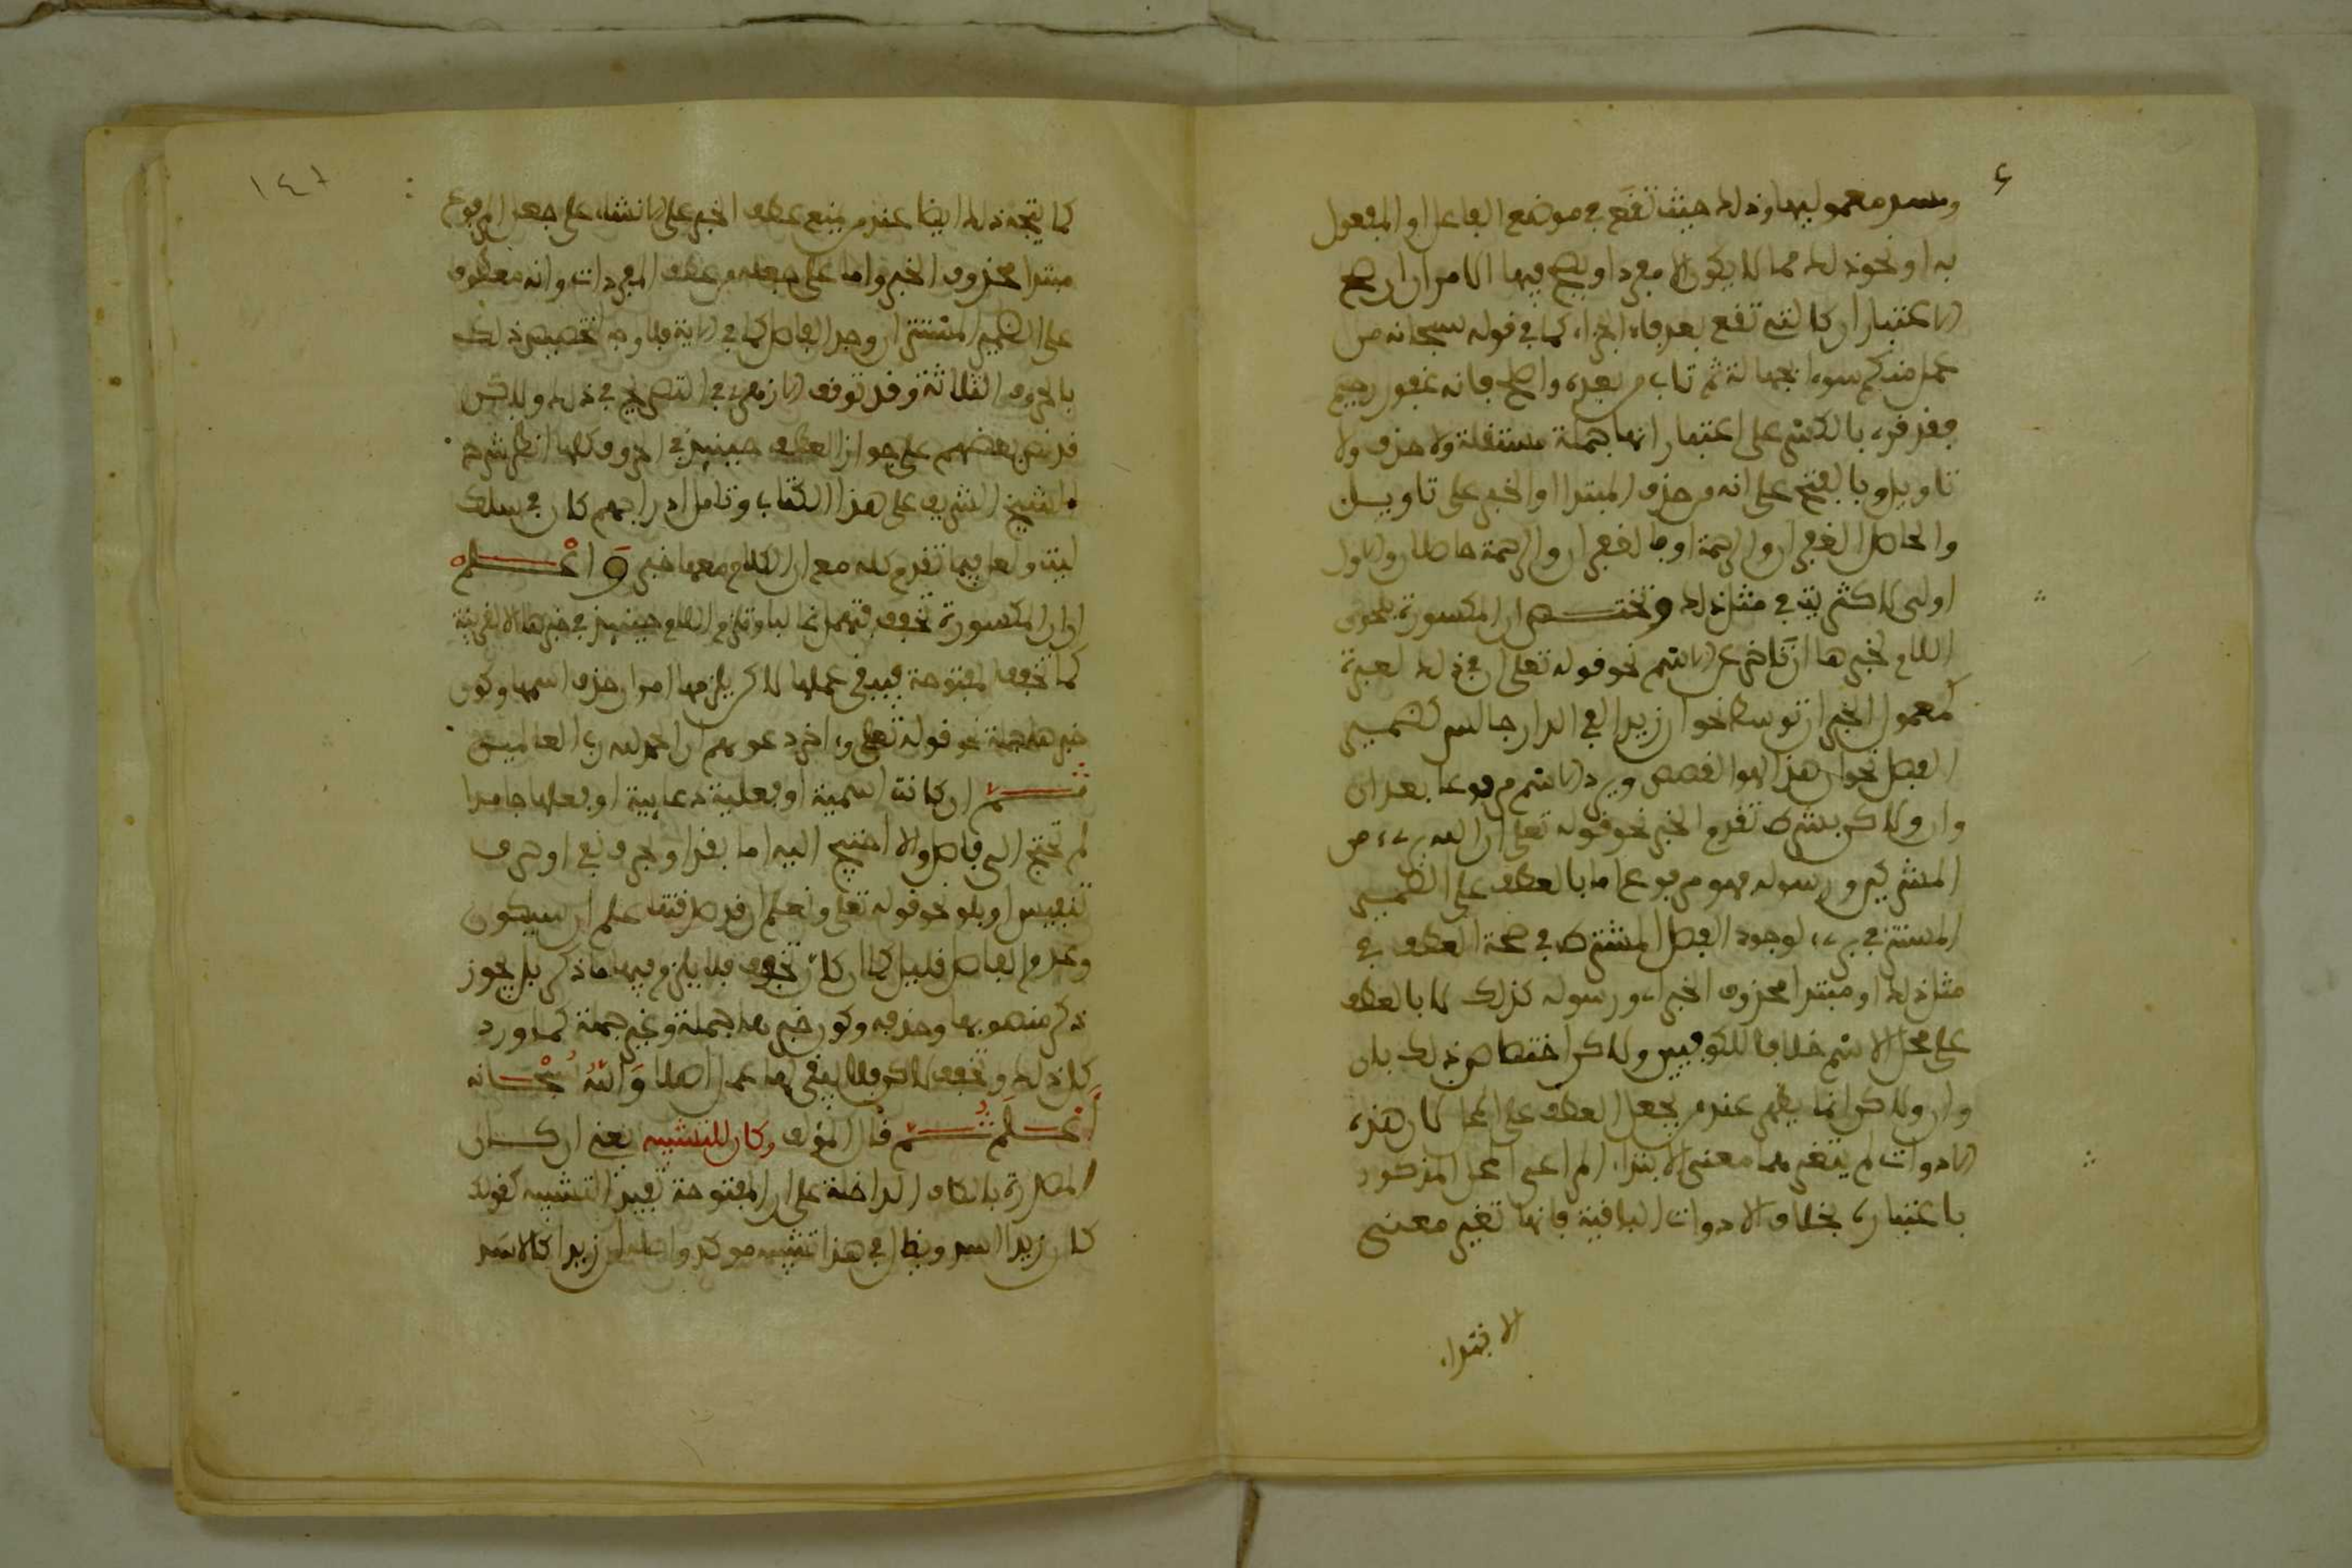 ومسد معموليها وذلك حيث تقع في موضع الفاعل او المفعول
به او نحو ذلك مما لا يكون الا مفردا ويصح فيها الامران ان صح
الاعتباران كالتي تقع بعد فاء الجزاء كما في قوله سبحانه من
عمل منكم سوءا بجهالة ثم تاب من بعده واصلح فانه غفور رحيم
فقد قرئ بالكسر على اعتبار انها جملة مستقلة ولا حذف ولا
تاويل وبالفتح على انه من حذف المبتدا او الخبر على تاويل
والحاصل الغفران والرحمة او فالغفران والرحمة حاصلان والاول
اولى لاكثريته في مثل ذلك وتختص ان المكسورة بلحوق
اللام لخبرها ان تاخر عن الاسم نحو قوله تعلى ان في ذلك لعبرة
لمعمول الخبر ان توسط نحو ان زيدا لفي الدار جالس لضمير
الفصل نحو ان هذا لهو القصص ويرد الاسم مرفوعا بعد ان
وان ولاكن بشرط تقدم الخبر نحو قوله تعلى ان الله برىء من
المشركين ورسوله فهو مرفوع اما بالعطف على الضمير
المستتر في برىء لوجود الفصل المشترط في صحة العطف في
مثل ذلك او مبتدا محذوف الخبر اي ورسوله كذلك لا بالعطف
على محل الاسم خلافا للكوفيين ولاكن اختصاص ذلك بان
وان ولاكن انما يظهر عند من يجعل العطف على المحل لان هذه
الادوات لم يتغير بها معنى الابتداء المراعى المحل المذكور
باعتباره بخلاف الادوات الباقية فانها تغير معنى
الابتداء
١٤٨
كما يتجه ذلك ايضا عند من يمنع عطف الخبر على الانشاء على جعل المرفوع
مبتدا محذوف الخبر واما على جعله من عطف المفردات وانه معطوف
على الضمير المستتر ان وجد الفاصل كما في الاية فلا وجه لتخصيص ذلك
بالحروف الثلاثة وقد توقف الازهري في التصريح في ذلك ولاكن
قد نص بعضهم على جواز العطف حينئذ في الحروف كلها انظر شرح
الشيخ الشريف على هذا الكتاب وتامل ادراجهم كان في سلك
ليت ولعل فيما تقدم كله مع ان الكلام معها خبر واعلم
ان ان المكسورة تخفف فتهمل غالبا وتلزم اللام حينئذ في خبرها الا لقرينة
كما تخفف المفتوحة فيبقى عملها لاكن يلزمها امران حذف اسمها وكون
خبرها جملة نحو قوله تعلى واخر دعويهم ان الحمد لله رب العالمين
ثم ان كانت اسمية او فعلية دعايية او فعلها جامدا
لم تحتج الى فاصل والا احتيج اليه اما بقد او حرف نفي او حرف
تنفيس او بلو نحو قوله تعلى ونعلم ان قد صدقتنا علم ان سيكون
وعدم الفاصل قليل كما ان كان تخفف فلا يلزم فيها ما ذكر بل يجوز
ذكر منصوبها وحذفه وكون خبرها جملة وغير جملة كما ورد
كل ذلك وتخفف لاكن فلا يبقى لها عمل اصلا والله سبحانه
اعلم ثم قال المؤلف وكان للتشبيه يعني ان كان
المصدرة بالكاف الداخلة على ان المفتوحة تفيد التشبيه كقولك
كان زيدا اسد ويقال في هذا تشبيه موكد واصله ان زيدا كالاسد